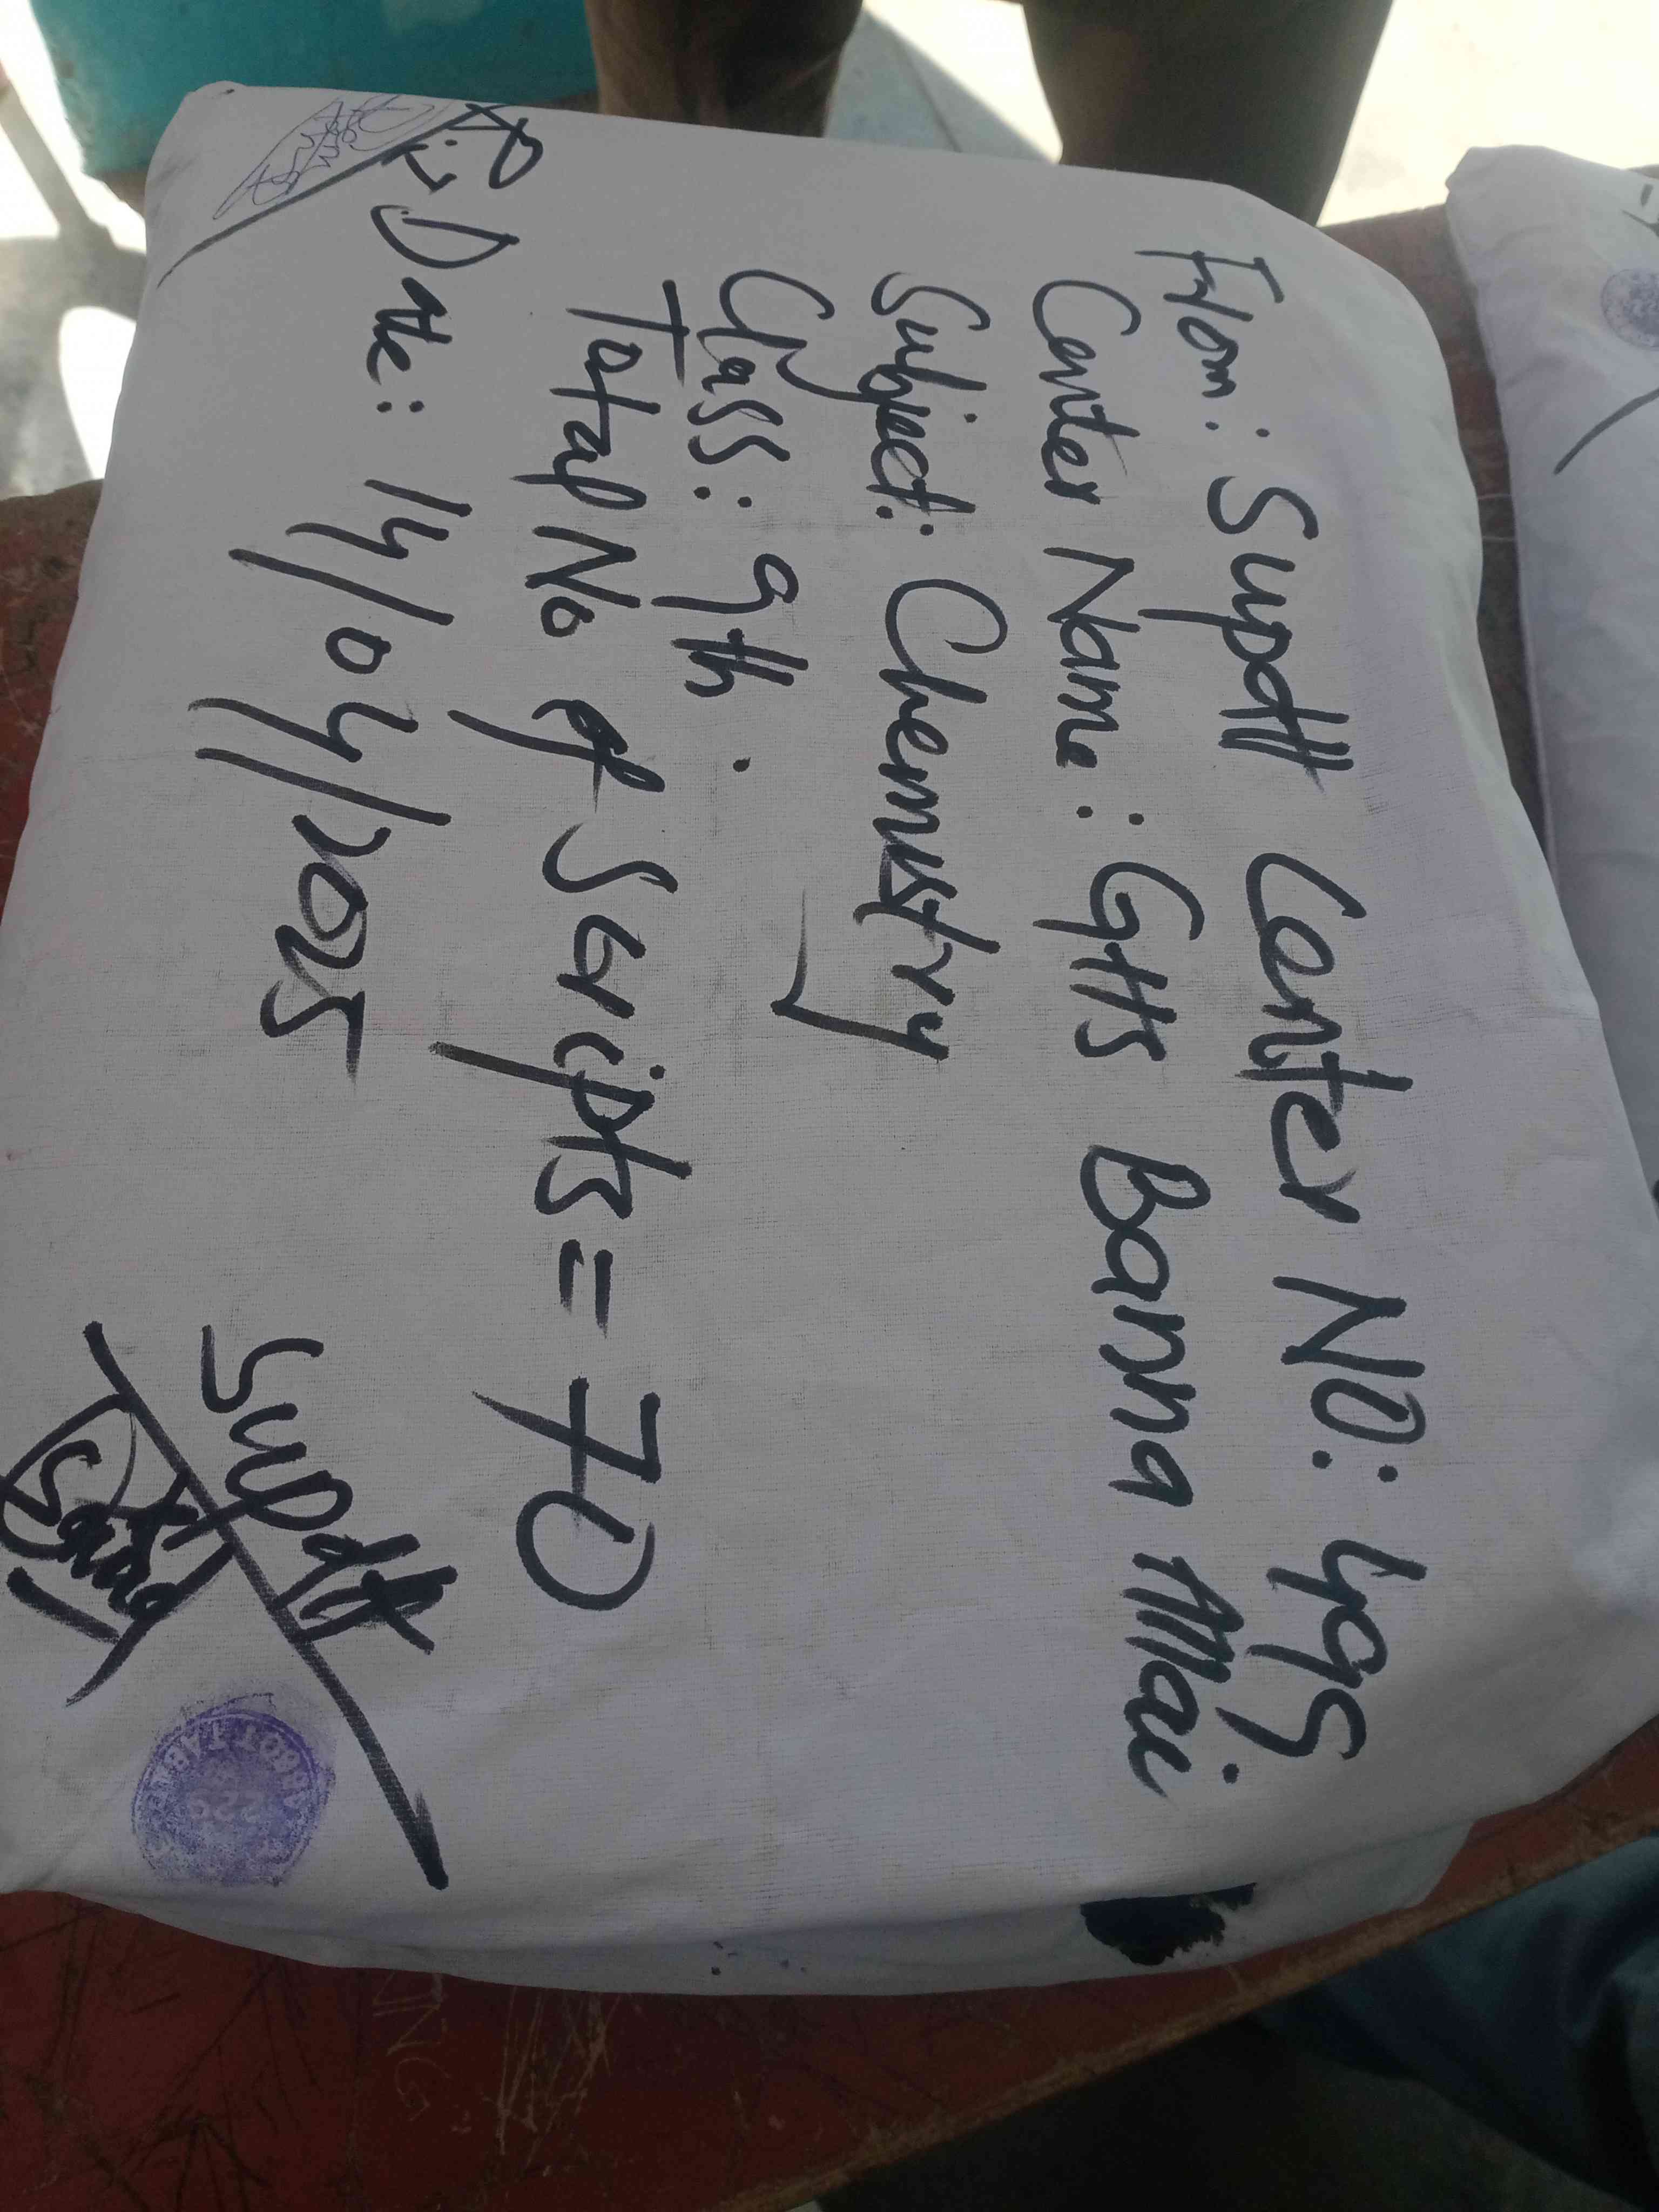 From: Supdtt Center NO: 495.
Center Name: GHS Banna Mai
Subject: Chemistry
Class: 9th.
Total No of Scripts = 70
Date: 14/04/2025
Supdtt